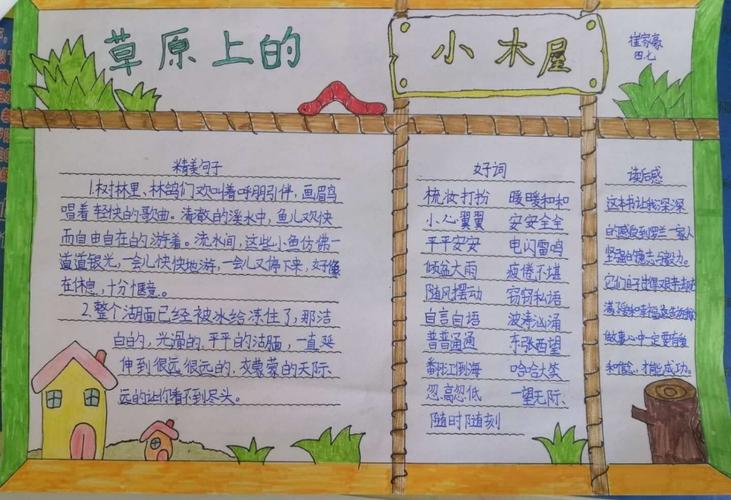 草原上的
小木屋
崔家豪
四、七
精美句子
1.树林里、林鸽们欢叫着呼朋引伴,画眉鸟
唱着轻快的歌曲。清澈的溪水中,鱼儿欢快
而自由自在的游着。流水间,这些小鱼仿佛一
道道银光,一会儿快快地游,一会儿又停下来,好像
在休息,十分惬意。
2.整个湖面已经被冰给冻住了,那洁
白的,光滑的、平平的湖面,一直延
伸到很远很远的、灰蒙蒙的天际、
远的让你看不到尽头。
好词
梳妆打扮 暖暖和和
小心翼翼 安安全全
平平安安 电闪雷鸣
倾盆大雨 疲倦不堪
随风摆动 窃窃私语
自言自语 波涛汹涌
普普通通 东张西望
翻江倒海 哈哈大笑
忽高忽低 一望无际、
随时随刻
读后感
这本书让我深深
的感受到罗兰一家人
坚强的
与毅力。
做事心中一定要有
才能成功。